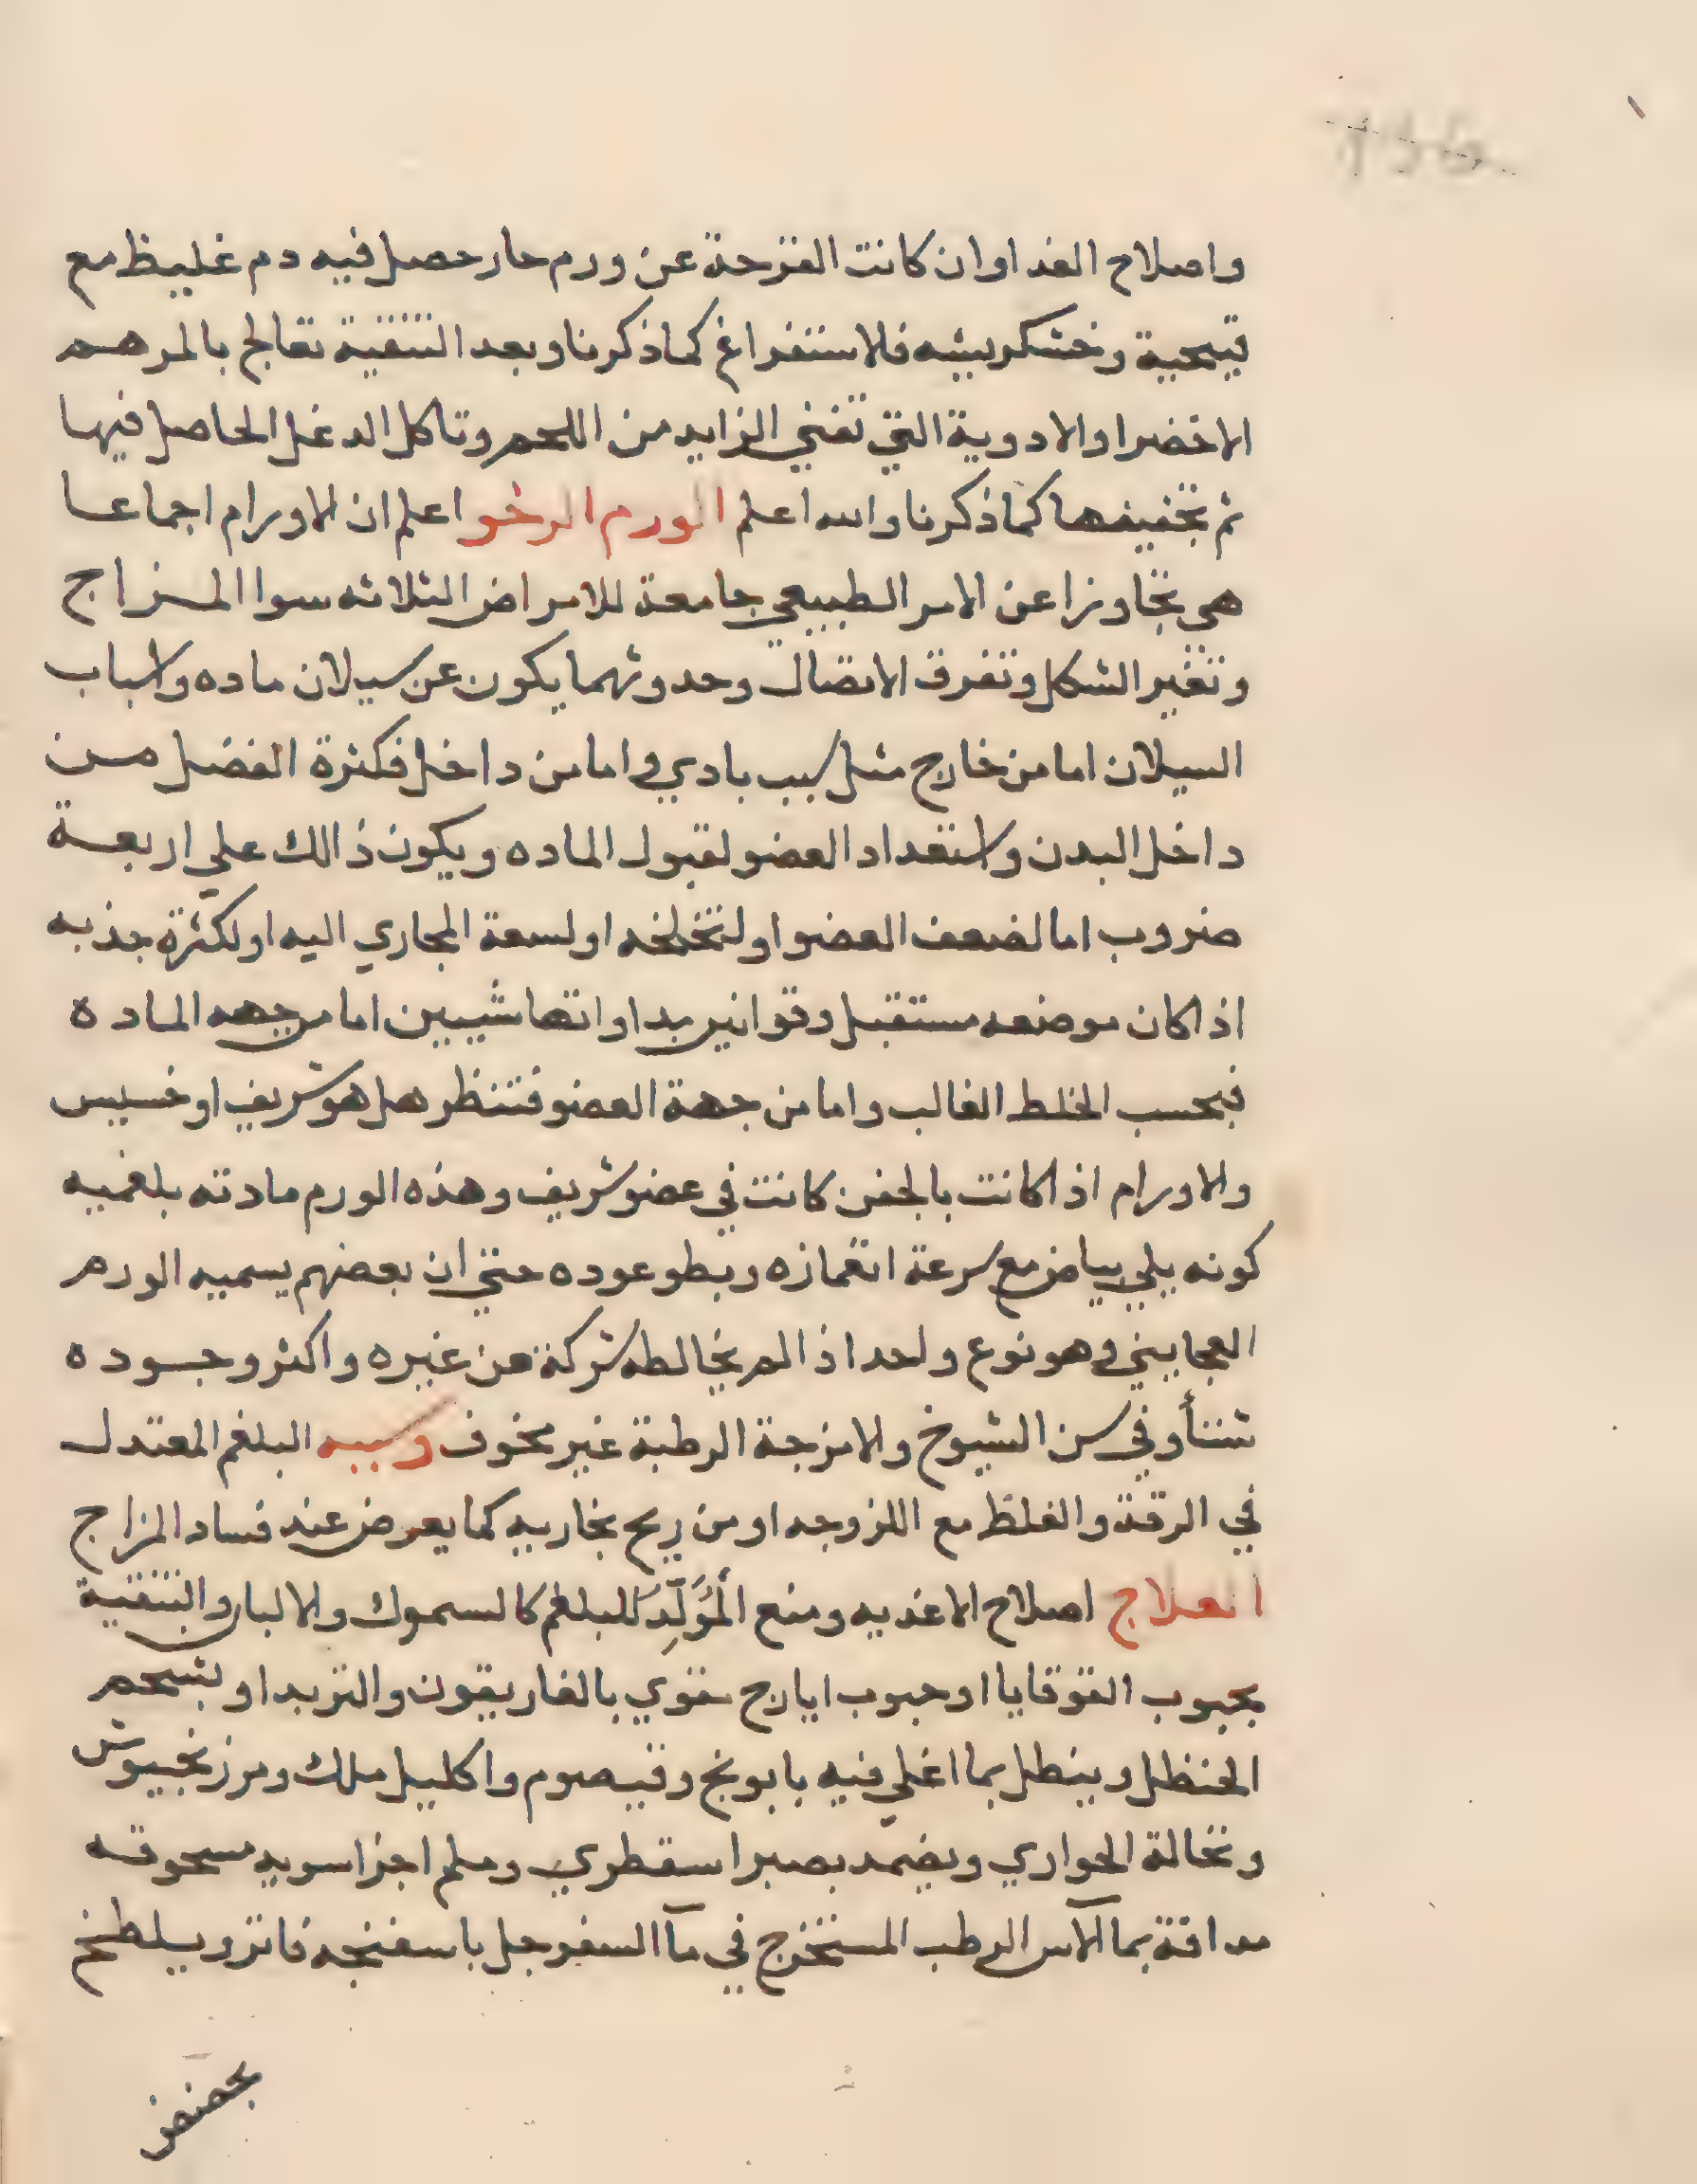 واصلاح الغدا وان كانت القرحة عن ورم حار حصل فيه دم غليظ مع
قيحية وخشكريشه فلاستفراغ كما ذكرنا وبعد التنقية تعالج بالمرهم
الاخضر والادوية التي تفني الزايد من اللحم وتاكل الدغل الحاصل فيها
ثم تجفيفها كما ذكرنا والله اعلم الورم الرخو اعلم ان الاورام اجماعا
هي تجاوزا عن الامر الطبيعي جامعة للامراض الثلاثه سوا المزاج
وتغير الشكل وتفرق الاتصال وحدوثهما يكون عن سيلان ماده واسباب
السيلان اما من خارج مثل سبب بادي واما من داخل فكثرة الفضل من
داخل البدن واستعداد العضو لقبول الماده ويكون ذالك علي اربعة
ضروب اما لضعف العضو او لتخلخله او لسعة المجاري اليه او لكثرة جذبه
اذا كان موضعه مستقبل وقوانين مداواتها شيين اما من جهه المادة
فبحسب الخلط الغالب واما من جهة العضو فتنظر هل هو شريف او خسيس
والاورام اذا كانت بالجفن كانت في عضو شريف وهذه الورم مادته بلغميه
كونه يلي بياض مع سرعة انغمازه وبطو عوده حتي ان بعضهم يسميه الورم
العجايني وهو نوع واحد اذا لم يخالطه شركة من غيره واكثر وجوده
شتأ وفي سن الشيوخ والامزجة الرطبة غير مخوف وسببه البلغم المعتدل
في الرقة والغلظ مع اللزوجه او من ريح بخاريه كما يعرض عند فساد المزاج
العلاج اصلاح الاغديه ومنع المُوَلِّدَ للبلغم كالسموك والالبان والتنقية
بحبوب القوقايا او حبوب ايارج مقوي بالغاريقون والتربد او بشحم
الحنظل وينطل بما اغلي فيه بابونج وقيصوم واكليل ملك ومرزنجوش
ونخالة الحواري ويضمد بصبر اسقطري وملح اجزا سويه مسحوقه
مدافة بما الآس الرطب المستخرج في مآ السفرجل باسفنجه فاتر ويلطخ
بحضض